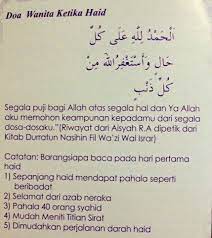 Doa Wanita Ketika Haid
اَلْحَمْدُ لِلّٰهِ عَلَى كُلِّ
حَالٍ وَأَسْتَغْفِرُ اللهَ مِنْ
كُلِّ ذَنْبٍ
Segala puji bagi Allah atas segala hal dan Ya Allah
aku memohon keampunan kepadamu dari segala
dosa-dosaku."(Riwayat dari Aisyah R.A dipetik dari
Kitab Durratun Nasihin Fil Wa'zi Wal Israr)
Catatan: Barangsiapa baca pada hari pertama
haid
1) Sepanjang haid mendapat pahala seperti
beribadat
2) Selamat dari azab neraka
3) Pahala 40 orang syahid
4) Mudah Meniti Titian Sirat
5) Dimudahkan perjalanan darah haid